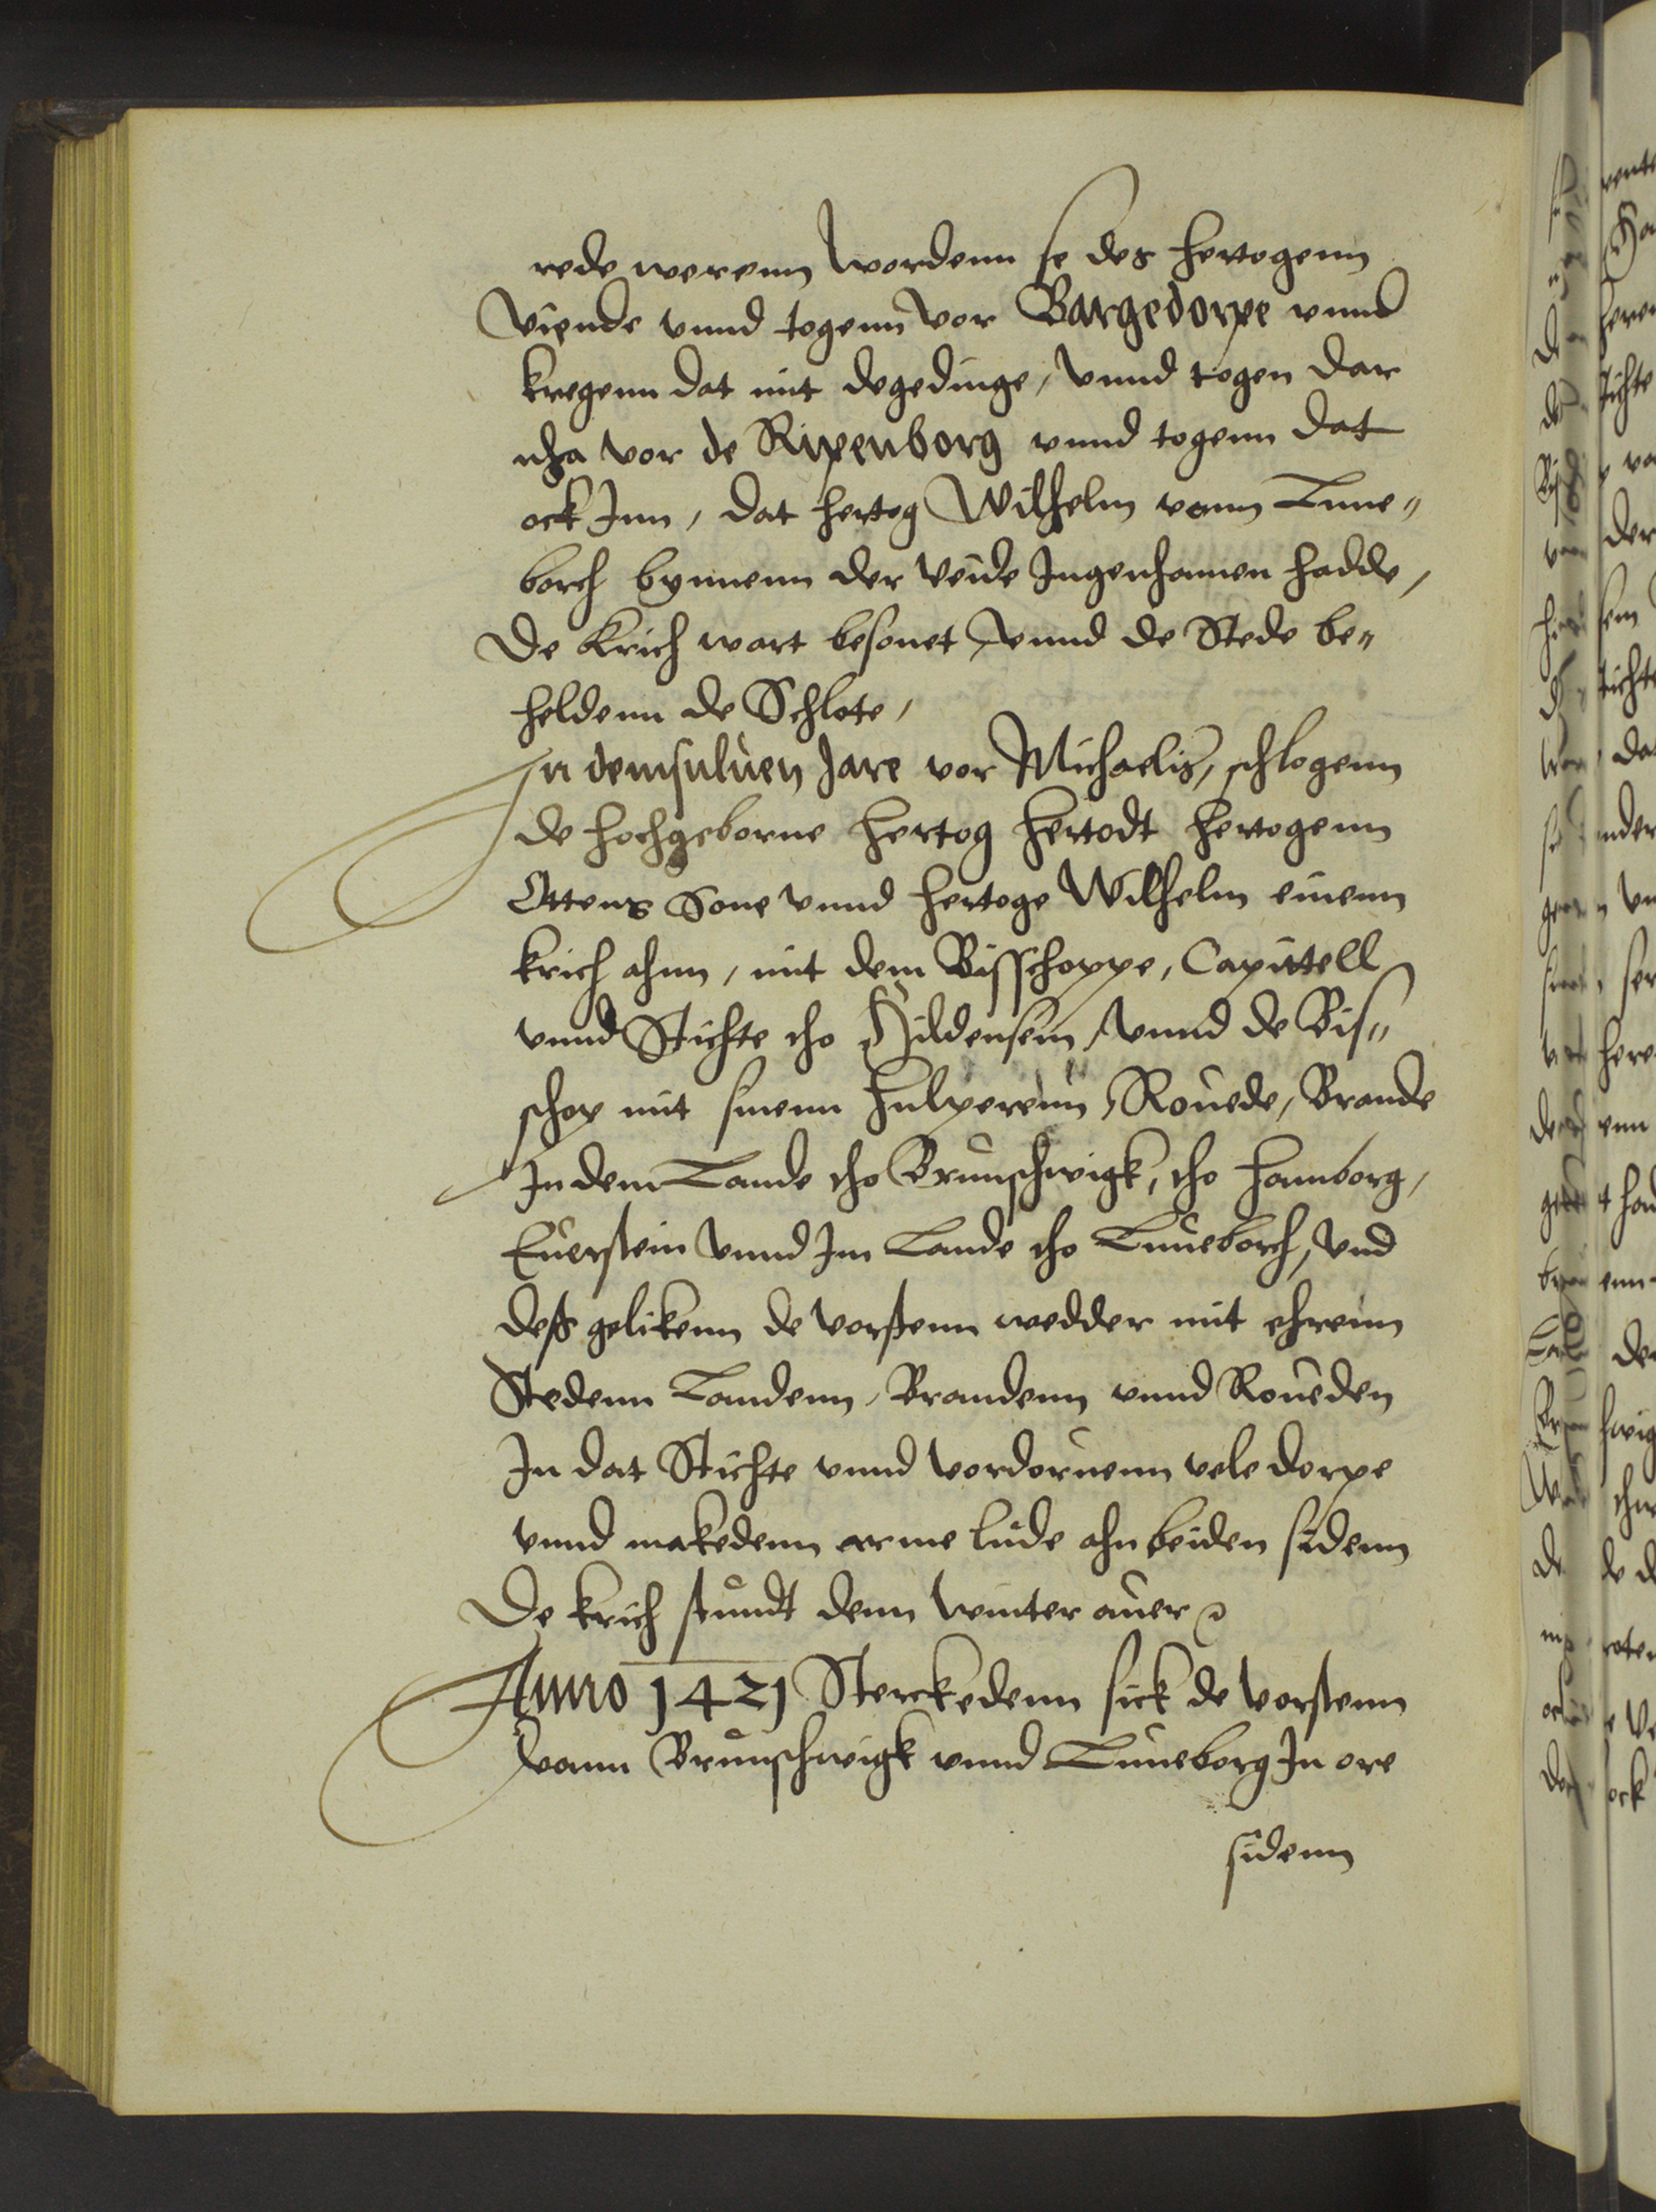 rede werenn wordenn se des hertogenn
Viende vnnd togenn vor Bargedorpe vnnd
kregenn dat mit degedinge, vnnd togen dar
nha vor de Ripenborg vnnd togenn dat
ock Inn, dat hertog Wilhelm vann Lune„
borch bynnenn der veide Ingenhamen hadde,
De Krich wart besonet, vnnd de Stede be„
heldenn de Schlote,
In demsuluen Jare vor Michaelis, schlogenn
de hochgeborne hertog hertodt hertogenn
Ottens Sone vnnd hertoge Wilhelm einenn
krich ahnn, mit dem Bisschoppe, Capittell
vnnd Stichte tho Hildensem, vnnd de Bis„
schop mit sinenn hulperenn, Rouede, Brande
In dem Lande tho Brunschwigk, tho Hamborg,
Euerstein vnnd Im Lande tho Luneborch, vnd
deß gelikenn de vorstenn wedder mit ehrenn
Stedenn Landenn, Brandenn vnnd Roueden
In dat Stichte vnnd vordoruenn vele dorpe
vnnd makedenn arme lude ahn beiden sidenn
De krich stundt denn winter auer
Anno 1421 Sterckedenn sick de vorstenn
vann Brunschwigk vnnd Luneborg In ore
sidenn